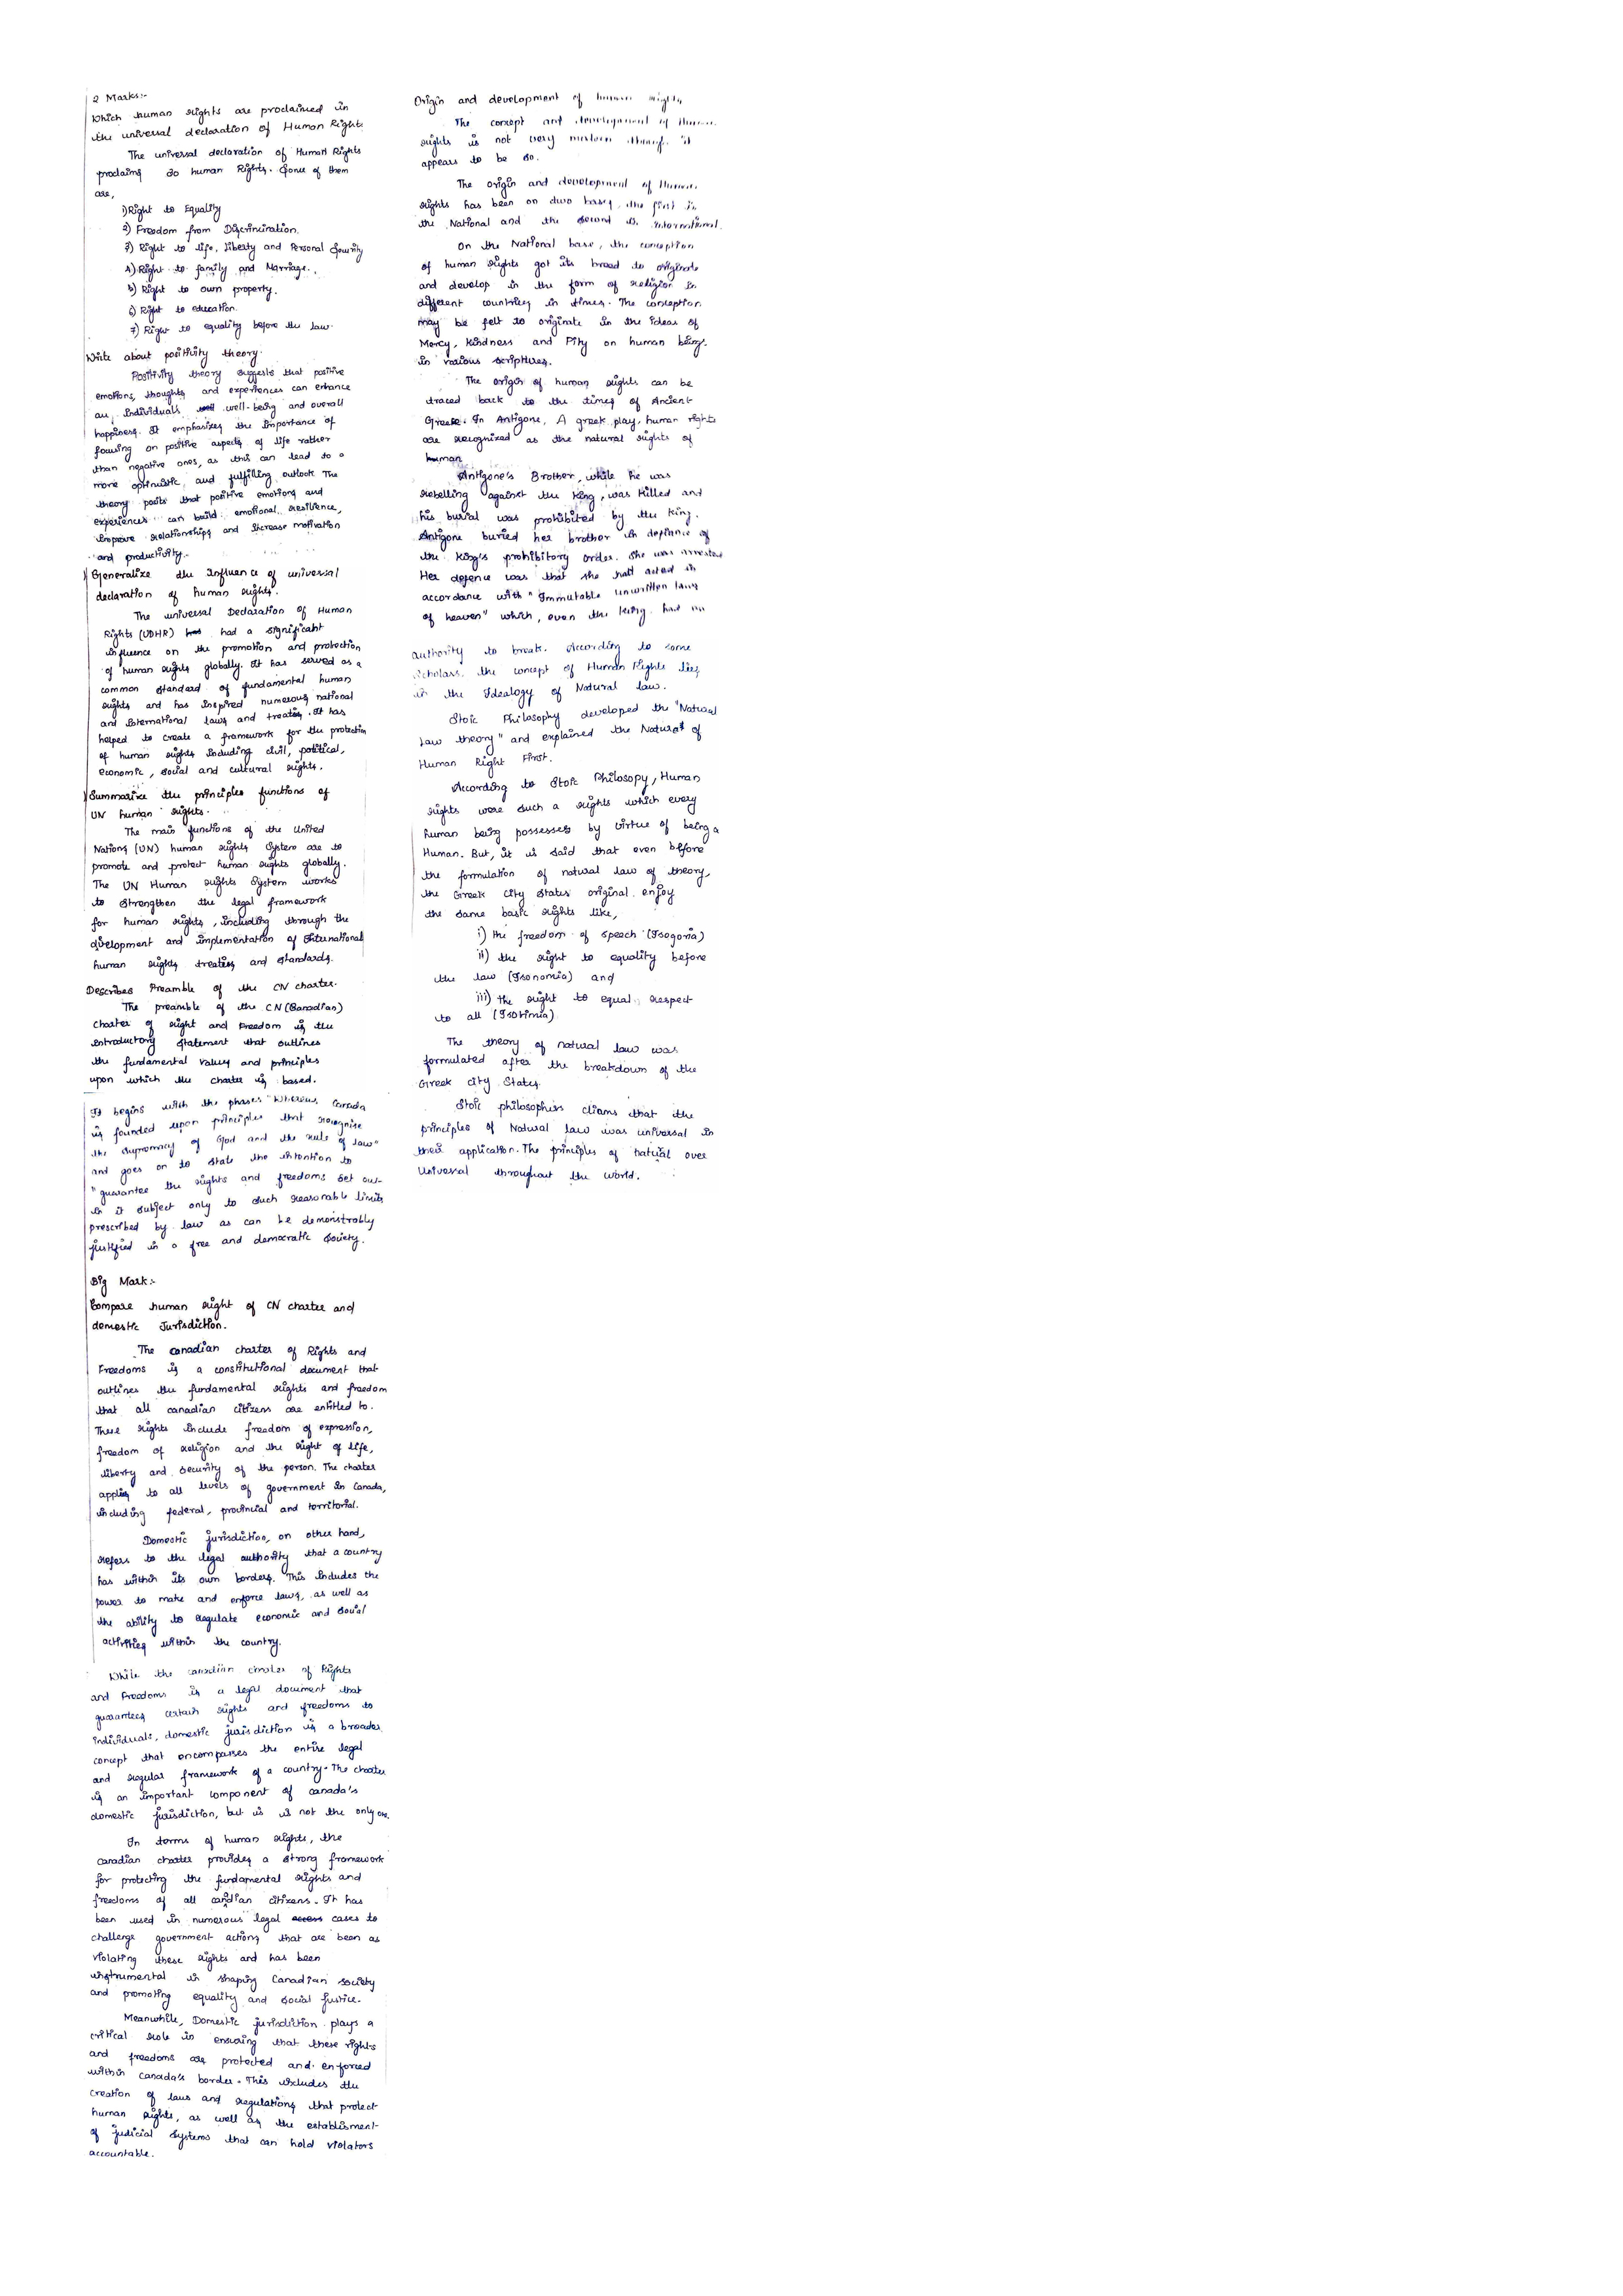 2 Marks:-
Which human rights are proclaimed in
the universal declaration of Human Rights.
The universal declaration of Human Rights
proclaims 30 human Rights. Some of them
are,
1) Right to Equality
2) Freedom from Discrimination.
3) Right to life, liberty and Personal Security
4) Right to family and Marriage.
5) Right to own property.
6) Right to education.
7) Right to equality before the law.
Write about positivity theory.
Positivity theory suggests that positive
emotions, thoughts and experiences can enhance
an individuals well-being and overall
happiness. It emphasizes the importance of
focusing on positive aspects of life rather
than negative ones, as this can lead to a
more optimistic and fulfilling outlook. The
theory posits that positive emotions and
experiences can build emotional resilience,
improve relationships and increase motivation
and productivity.
Generalize the Influence of universal
declaration of human rights.
The universal Declaration of Human
Rights (UDHR) had a significant
influence on the promotion and protection
of human rights globally. It has served as a
common standard of fundamental human
rights and has inspired numerous national
and International laws and treaties. It has
helped to create a framework for the protection
of human rights including civil, political,
economic, social and cultural rights.
Summarize the principles functions of
UN human rights.
The main functions of the United
Nations (UN) human rights System are to
promote and protect human rights globally.
The UN Human rights System works
to strengthen the legal framework
for human rights, including through the
development and implementation of International
human rights treaties and standards.
Describes Preamble of the CN charter.
The preamble of the CN (Canadian)
charter of right and Freedom is the
introductory statement that outlines
the fundamental values and principles
upon which the charter is based.
It begins with the phases "Whereas Canada
is founded upon principles that recognise
the supremacy of God and the rule of law"
and goes on to state the intention to
"guarantee the rights and freedoms set out
in it subject only to such reasonable limits
prescribed by law as can be demonstrably
justified in a free and democratic society.
Big Mark:-
Compare human right of CN charter and
domestic Jurisdiction.
The canadian charter of Rights and
Freedoms is a constitutional document that
outlines the fundamental rights and freedom
that all canadian citizens are entitled to.
These rights include freedom of expression,
freedom of religion and the right of life,
liberty and security of the person. The charter
applies to all levels of government in Canada,
including federal, provincial and territorial.
Domestic jurisdiction, on other hand,
refers to the legal authority that a country
has within its own borders. This includes the
power to make and enforce laws, as well as
the ability to regulate economic and social
activities within the country.
While the canadian charter of Rights
and Freedoms is a legal document that
guarantees certain rights and freedoms to
individuals, domestic jurisdiction is a broader
concept that encompasses the entire legal
and regular framework of a country. The charter
is an important component of canada's
domestic jurisdiction, but is is not the only one.
In terms of human rights, the
canadian charter provides a strong framework
for protecting the fundamental rights and
freedoms of all candian citizens. It has
been used in numerous legal cases to
challenge government actions that are been as
violating these rights and has been
instrumental in shaping Canadian society
and promoting equality and social justice.
Meanwhile, Domestic jurisdiction plays a
critical role in ensuring that these rights
and freedoms are protected and enforced
within canada's border. This includes the
creation of laws and regulations that protect
human rights, as well as the establisment
of judicial systems that can hold violators
accountable.
Origin and development of human rights
The concept and development of Human
rights is not very modern though it
appears to be so.
The origin and development of Human
rights has been on two bases, the first is
the National and the second is International.
On the National base, the conception
of human rights got its broad to originate
and develop in the form of religion in
different countries in times. The conception
may be felt to originate in the ideas of
Mercy, kindness and Pity on human being.
in various scriptures.
The origin of human rights can be
traced back to the times of Ancient
Greek. In Antigone, A greek play, human rights
are recognized as the natural rights of
human.
Antigone's Brother, while he was
rebelling against the King, was killed and
his burial was prohibited by the King.
Antigone buried her brother in defiance of
the King's prohibitory order. She was arrested
Her defence was that she had acted in
accordance with "Immutable unwritten laws
of heaven" which, even the king had no
authority to break. According to some
Scholars, the concept of Human Rights lies
in the Idealogy of Natural law.
Stoic Philosophy developed the "Natural
law theory" and explained the Nature of
Human Right First.
According to Stoic Philosopy, Human
rights were such a rights which every
human being possesses by virtue of being a
Human. But, it is said that even before
the formulation of natural law of theory,
the Greek City States original enjoy
the same basic rights like,
i) the freedom of speech (Isogoria)
ii) the right to equality before
the law (Isonomia) and
iii) the right to equal respect
to all (Isotimia)
The theory of natural law was
formulated after the breakdown of the
Greek City States.
Stoic philosophers cliams that the
principles of Natural law was universal in
their application. The principles of natural over
Universal throughout the world.